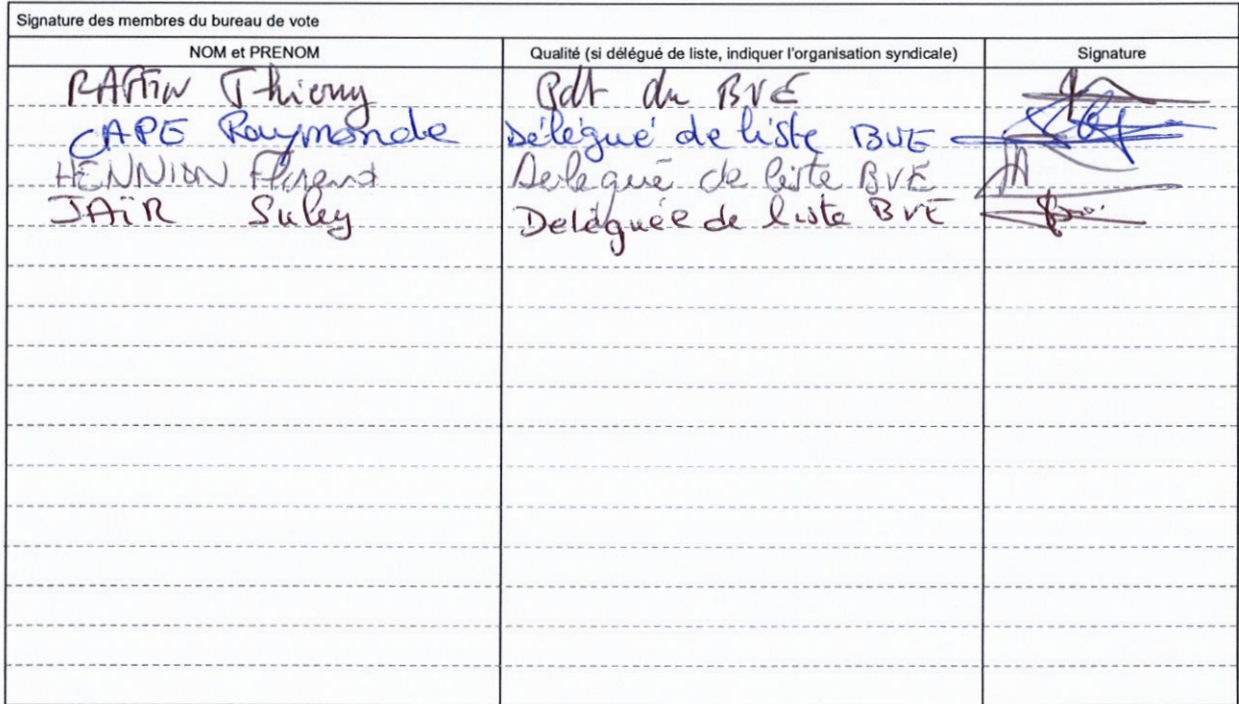 Signature des membres du bureau de vote
NOM et PRENOM Qualité (si délégué de liste, indiquer l'organisation syndicale) Signature
Thierry Pdt du BVE
CAPE Raymonde Délégué de liste BVE
HENNION Délégué de liste BVE
JAÏR Suley Deléguée de liste BVE